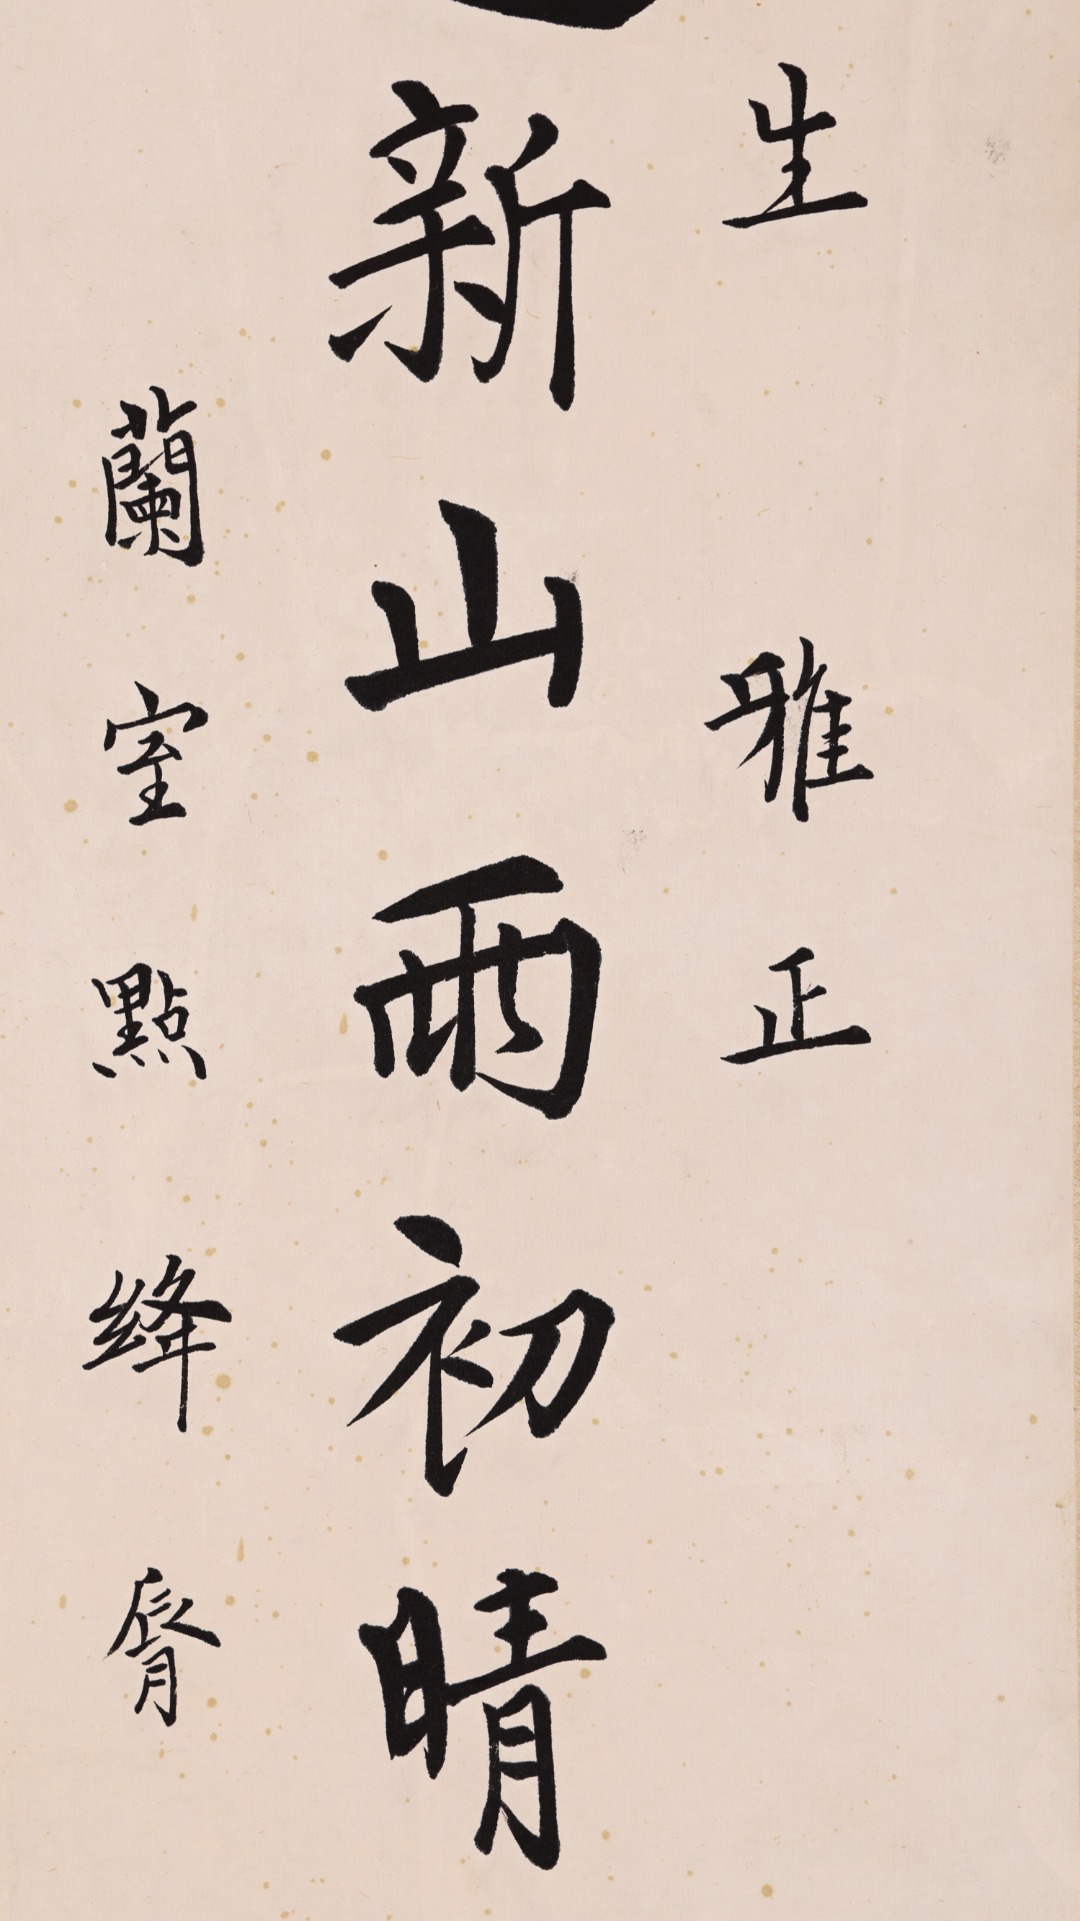 生 雅正
新山雨初晴
蘭室點絳脣